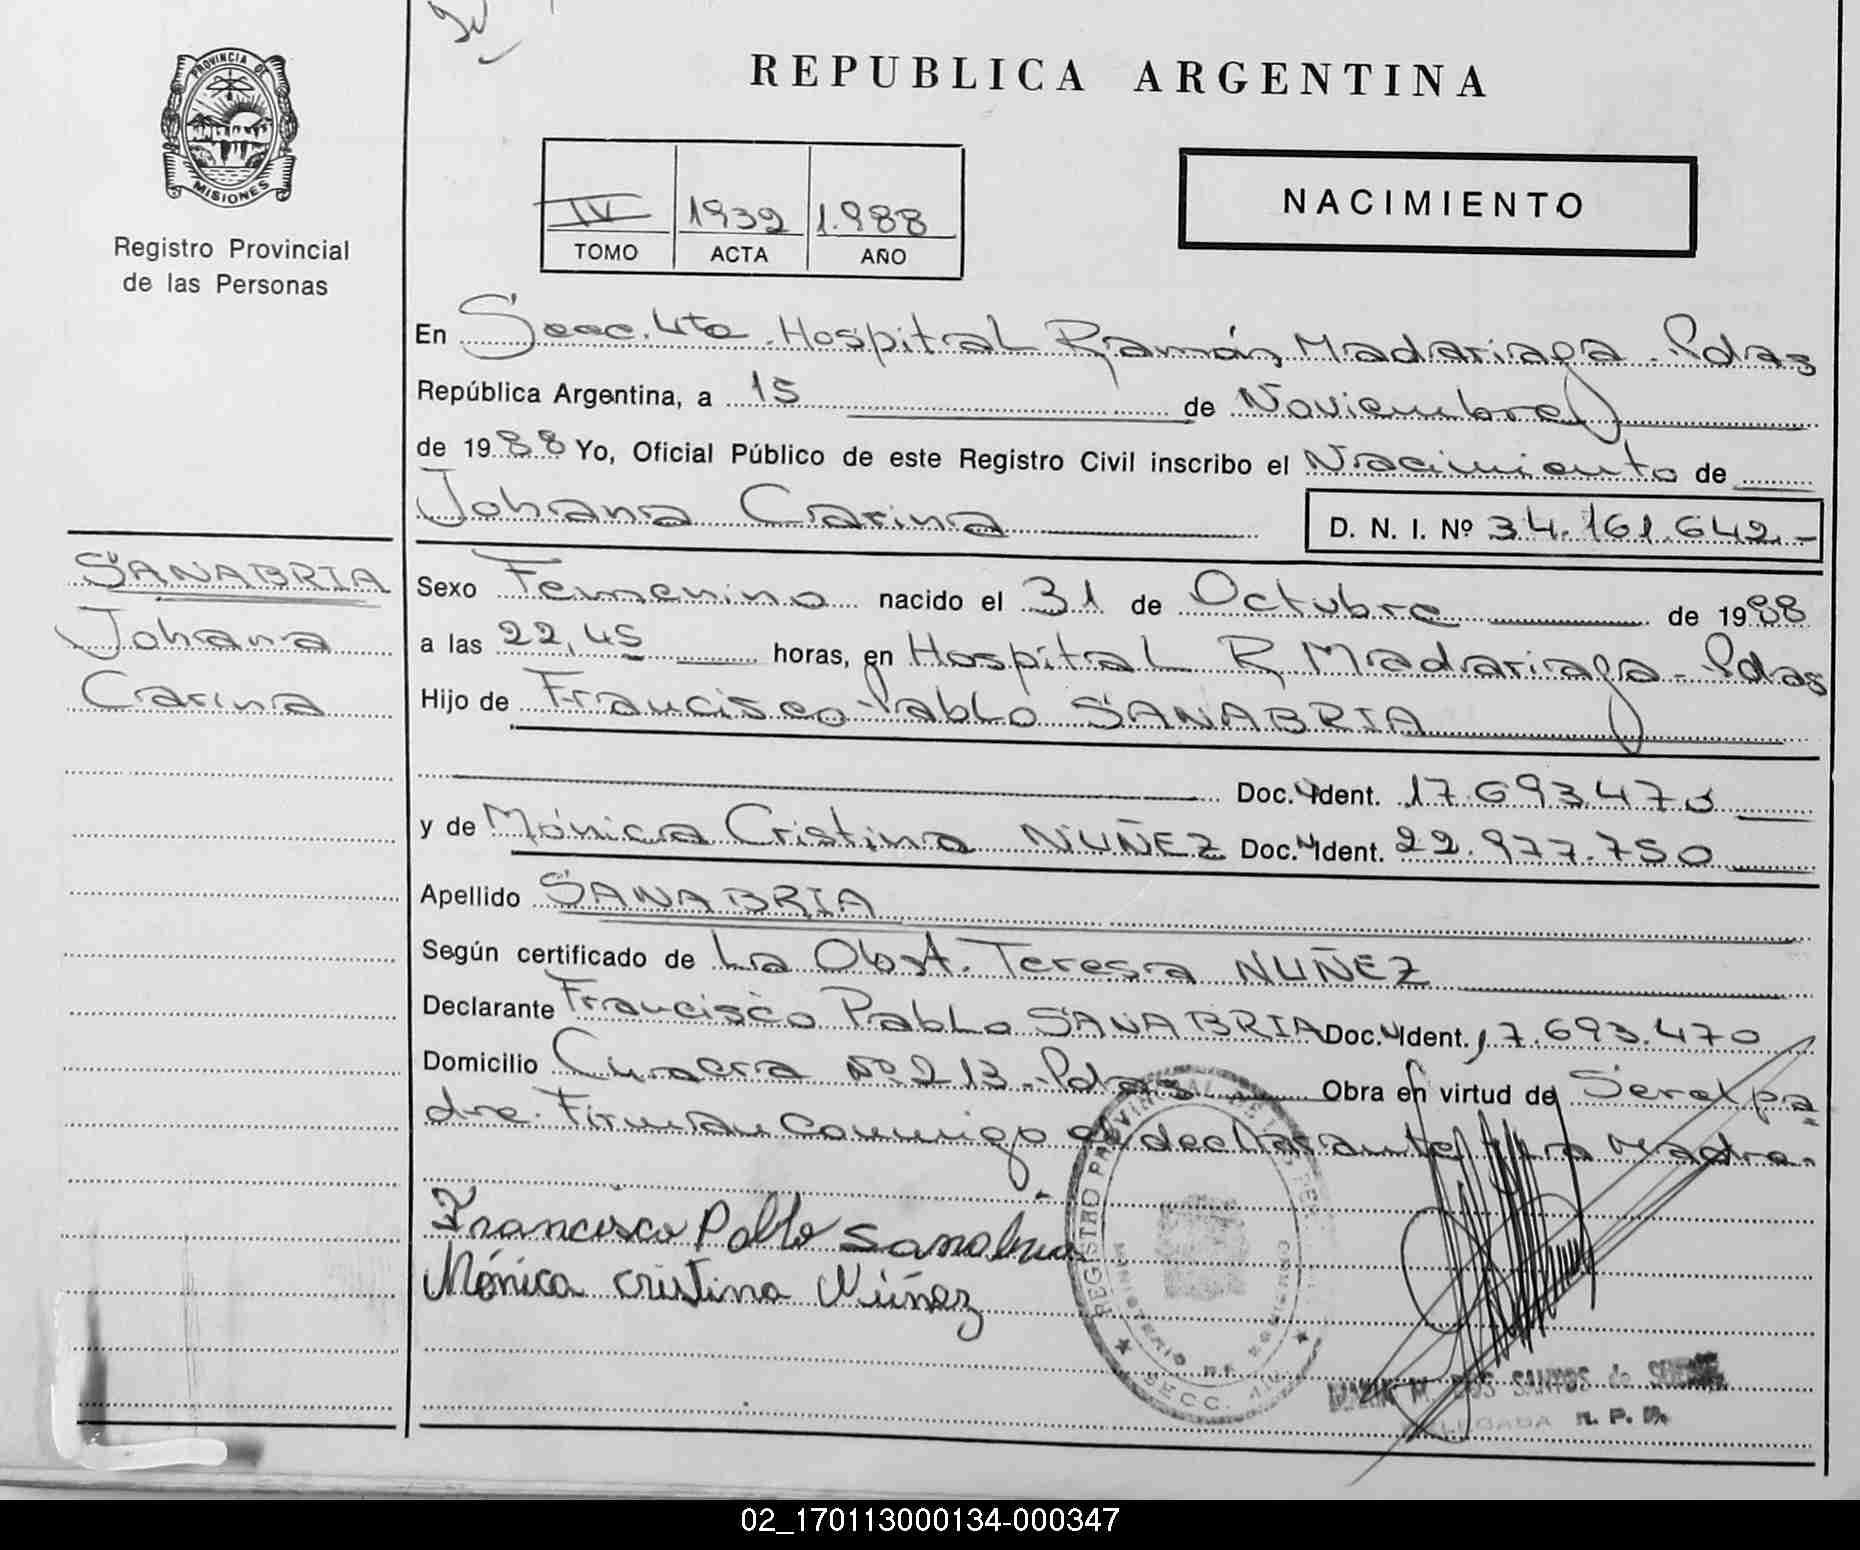 PROVINCIA DE
MISIONES
Registro Provincial
de las Personas
REPUBLICA ARGENTINA
IV 1932 1.988
TOMO ACTA AÑO
NACIMIENTO
En Secc. 4ta. Hospital Ramón Madariaga - Pdas
República Argentina, a 15 de Noviembre
de 1988 Yo, Oficial Público de este Registro Civil inscribo el Nacimiento de
Johana Carina D. N. I. Nº 34.161.642.-
SANABRIA
Johana
Carina
Sexo Femenino nacido el 31 de Octubre de 1988
a las 22,45 horas, en Hospital R Madariaga - Pdas
Hijo de Francisco Pablo SANABRIA
Doc. Ident. 17.693.470
y de Mónica Cristina NUÑEZ Doc. Ident. 22.977.750
Apellido SANABRIA
Según certificado de La Obst. Teresa NUÑEZ
Declarante Francisco Pablo SANABRIA Doc. Ident. 17.693.470
Domicilio Nº 213 - Pdas Obra en virtud de Ser el pa
dre. Firman conmigo el declarante y la Madre.
Francisco Pablo Sanabria
Mónica Cristina Núñez
REGISTRO PROVINCIAL DE LAS
MINISTERIO DE GOBIERNO
SECC.
M. DOS SANTOS de
DELEGADA R. P. P.
02_170113000134-000347